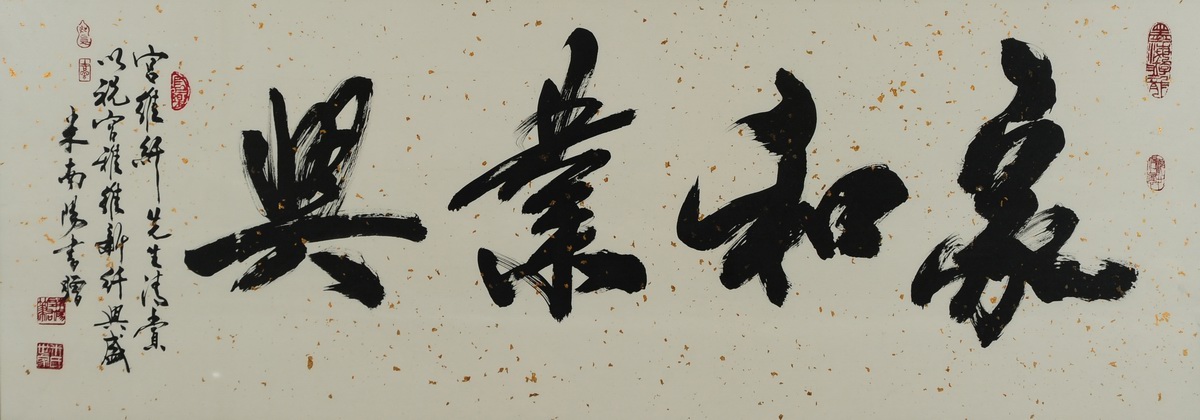 家和業興
宮維纤先生清賞
以祝宮雅維新纤興盛
米南陽書贈